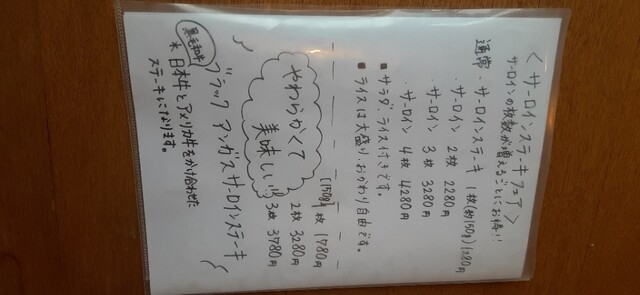 〈サーロインステーキフェア〉
サーロインの枚数が増えるごとにお得!!
通常・サーロインステーキ 1枚(約150g)1280円
・サーロイン 2枚 2280円
・サーロイン 3枚 3280円
・サーロイン 4枚 4280円
■サラダ、ライス付きです。
■ライスは大盛り、おかわり自由です。
やわらかくて
美味しい!!
(150g)1枚 1780円
2枚 3280円
3枚 3780円
ブラックアンガスサーロインステーキ
黒毛和牛
*日本牛とアメリカ牛をかけ合わせた
ステーキになります。